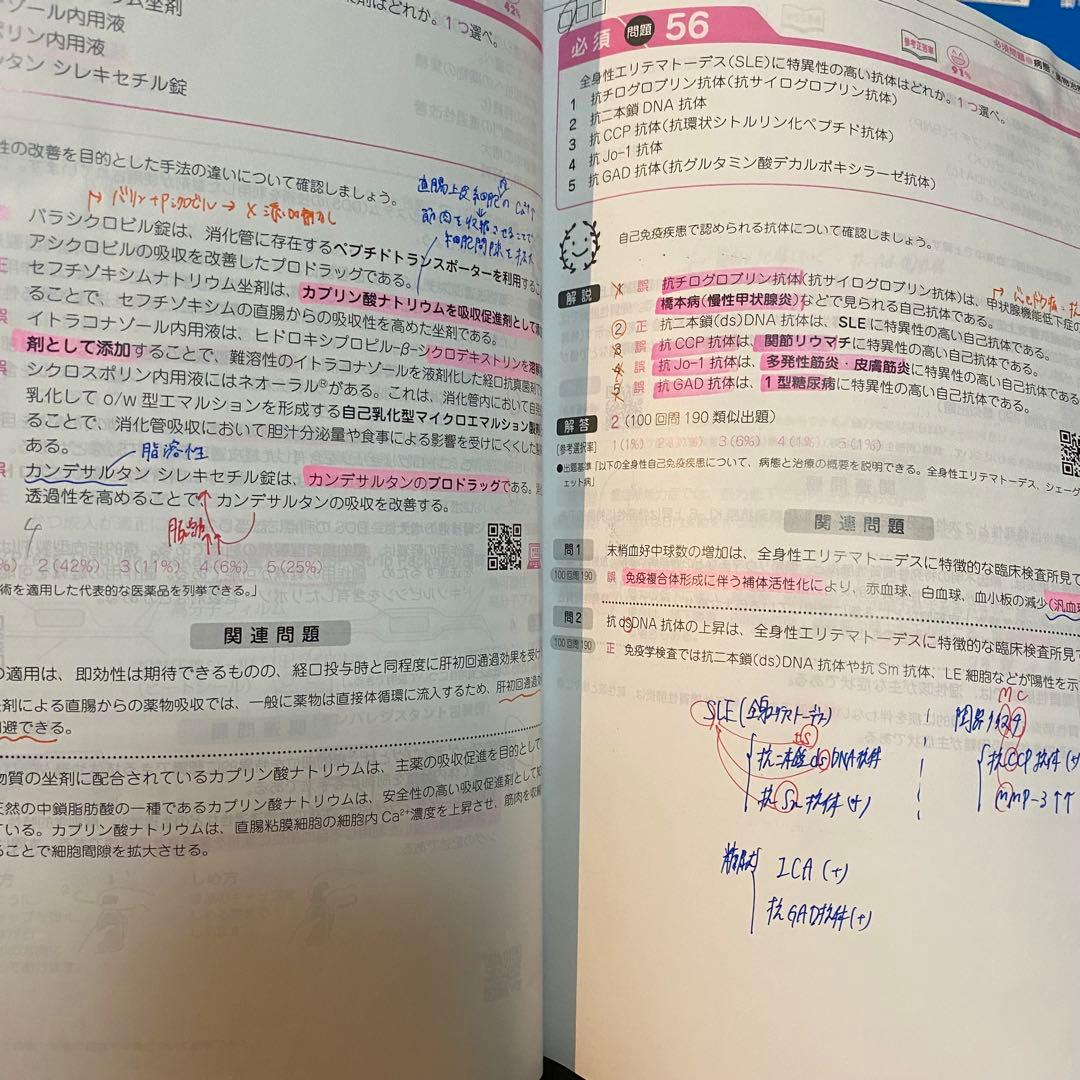 ウム坐剤
ゾール内用液
ポリン内用液
タン シレキセチル錠
剤はどれか。1つ選べ。
42%
性の改善を目的とした手法の違いについて確認しましょう。
直腸上皮細胞内のCa²⁺↑
筋肉を収縮させることで
細胞間隙を拡大
バラシクロビル錠は、消化管に存在するペプチドトランスポーターを利用するこ
アシクロビルの吸収を改善したプロドラッグである。
セフチゾキシムナトリウム坐剤は、カプリン酸ナトリウムを吸収促進剤として
ることで、セフチゾキシムの直腸からの吸収性を高めた坐剤である。
イトラコナゾール内用液は、ヒドロキシプロピル-β-シクロデキストリンを溶解
剤として添加することで、難溶性のイトラコナゾールを液剤化した経口抗真菌剤で
シクロスポリン内用液にはネオーラル®がある。これは、消化管内において自発
乳化して o/w 型エマルションを形成する自己乳化型マイクロエマルション製剤
ることで、消化管吸収において胆汁分泌量や食事による影響を受けにくくした
ある。
脂溶性
カンデサルタン シレキセチル錠は、カンデサルタンのプロドラッグである。
透過性を高めることで、カンデサルタンの吸収を改善する。
4
%) 2(42%) 3(11%) 4(6%) 5(25%)
術を適用した代表的な医薬品を列挙できる。」
関連問題
の適用は、即効性は期待できるものの、経口投与時と同程度に肝初回通過効果を受け
剤による直腸からの薬物吸収では、一般に薬物は直接体循環に流入するため、肝初回通過
回避できる。
物質の坐剤に配合されているカプリン酸ナトリウムは、主薬の吸収促進を目的として
天然の中鎖脂肪酸の一種であるカプリン酸ナトリウムは、安全性の高い吸収促進剤として
ている。カプリン酸ナトリウムは、直腸粘膜細胞の細胞内 Ca²⁺濃度を上昇させ、筋肉を収縮
ることで細胞間隙を拡大させる。
必須 問題 56
参考正答率
91%
必須問題 病態・薬物治
全身性エリテマトーデス(SLE)に特異性の高い抗体はどれか。1つ選べ。
1 抗チログロブリン抗体(抗サイログロブリン抗体)
2 抗二本鎖DNA抗体
3 抗CCP抗体(抗環状シトルリン化ペプチド抗体)
4 抗Jo-1抗体
5 抗GAD抗体(抗グルタミン酸デカルボキシラーゼ抗体)
自己免疫疾患で認められる抗体について確認しましょう。
解説
1 誤 抗チログロブリン抗体(抗サイログロブリン抗体)は、甲状腺機能低下症の
橋本病(慢性甲状腺炎)などで見られる自己抗体である。
2 正 抗二本鎖(ds)DNA抗体は、SLEに特異性の高い自己抗体である。
3 誤 抗CCP抗体は、関節リウマチに特異性の高い自己抗体である。
4 誤 抗Jo-1抗体は、多発性筋炎・皮膚筋炎に特異性の高い自己抗体である
5 誤 抗GAD抗体は、1型糖尿病に特異性の高い自己抗体である。
解答 2(100回問190類似出題)
[参考選択率] 1(1%) 3(6%) 4(1%) 5(1%)
●出題基準「以下の全身性自己免疫疾患について、病態と治療の概要を説明できる。全身性エリテマトーデス、シェーグ
ェット病」
関連問題
問1 末梢血好中球数の増加は、全身性エリテマトーデスに特徴的な臨床検査所見で
100回問190 誤 免疫複合体形成に伴う補体活性化により、赤血球、白血球、血小板の減少(汎血球
問2 抗dsDNA抗体の上昇は、全身性エリテマトーデスに特徴的な臨床検査所見で
100回問190 正 免疫学検査では抗二本鎖(ds)DNA抗体や抗Sm抗体、LE細胞などが陽性を示
MC
SLE
抗二本鎖dsDNA抗体
抗Sm抗体(+)
関節リウマチ
抗CCP抗体(+)
MMP-3↑↑
糖尿病
ICA(+)
抗GAD抗体(+)